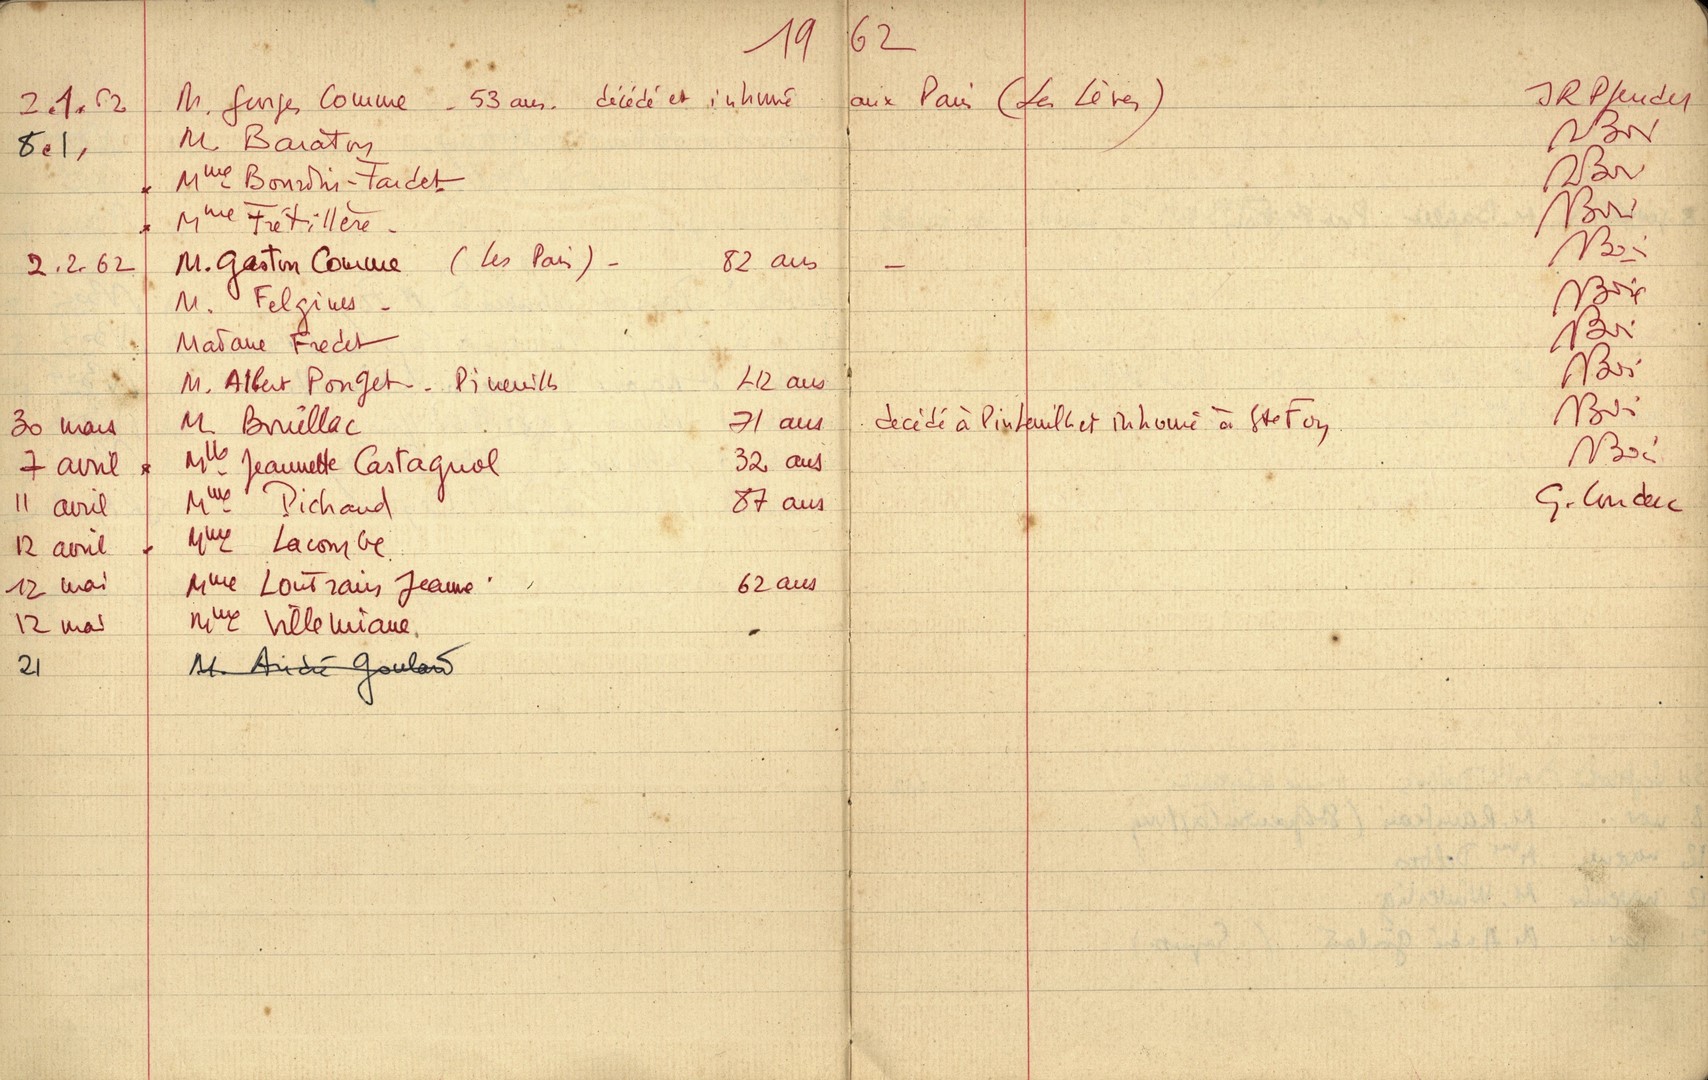 1962
2.1.62 M. Georges Comme - 53 ans - décédé et inhumé aux Pais (Les Lèves) JR Pfender
8.1, M. Baraton NBoi
Mme Bourdin-Fardet NBoi
Mme Frétillère - NBoi
2.2.62 M. Gaston Comme (Les Pais) - 82 ans - NBoi
M. Felgines - NBoi
Madame Fredet NBoi
M. Albert Ponget - Pineuilh 42 ans NBoi
30 mars M. Bouillac 71 ans décédé à Pineuilh et inhumé à Ste Foy NBoi
7 avril Mlle Jeannette Castagnol 32 ans NBoi
11 avril Mme Pichaud 87 ans G. Couderc
12 avril Mme Lacombe
12 mai Mme Loutrain Jeanne 62 ans
12 mai Mme Villemiane.
21 M. André Goulard